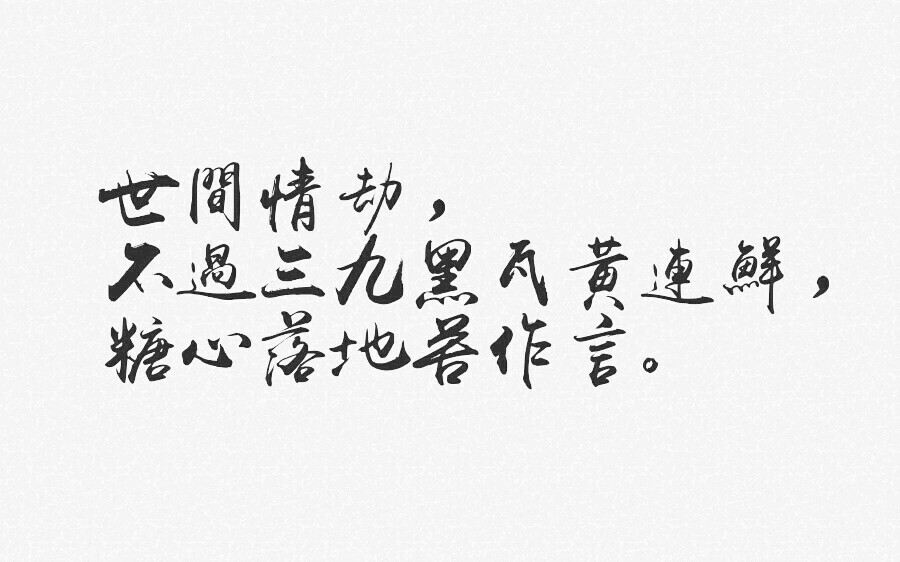 世間情劫，
不過三九黑瓦黃連鮮，
糖心落地苦作言。